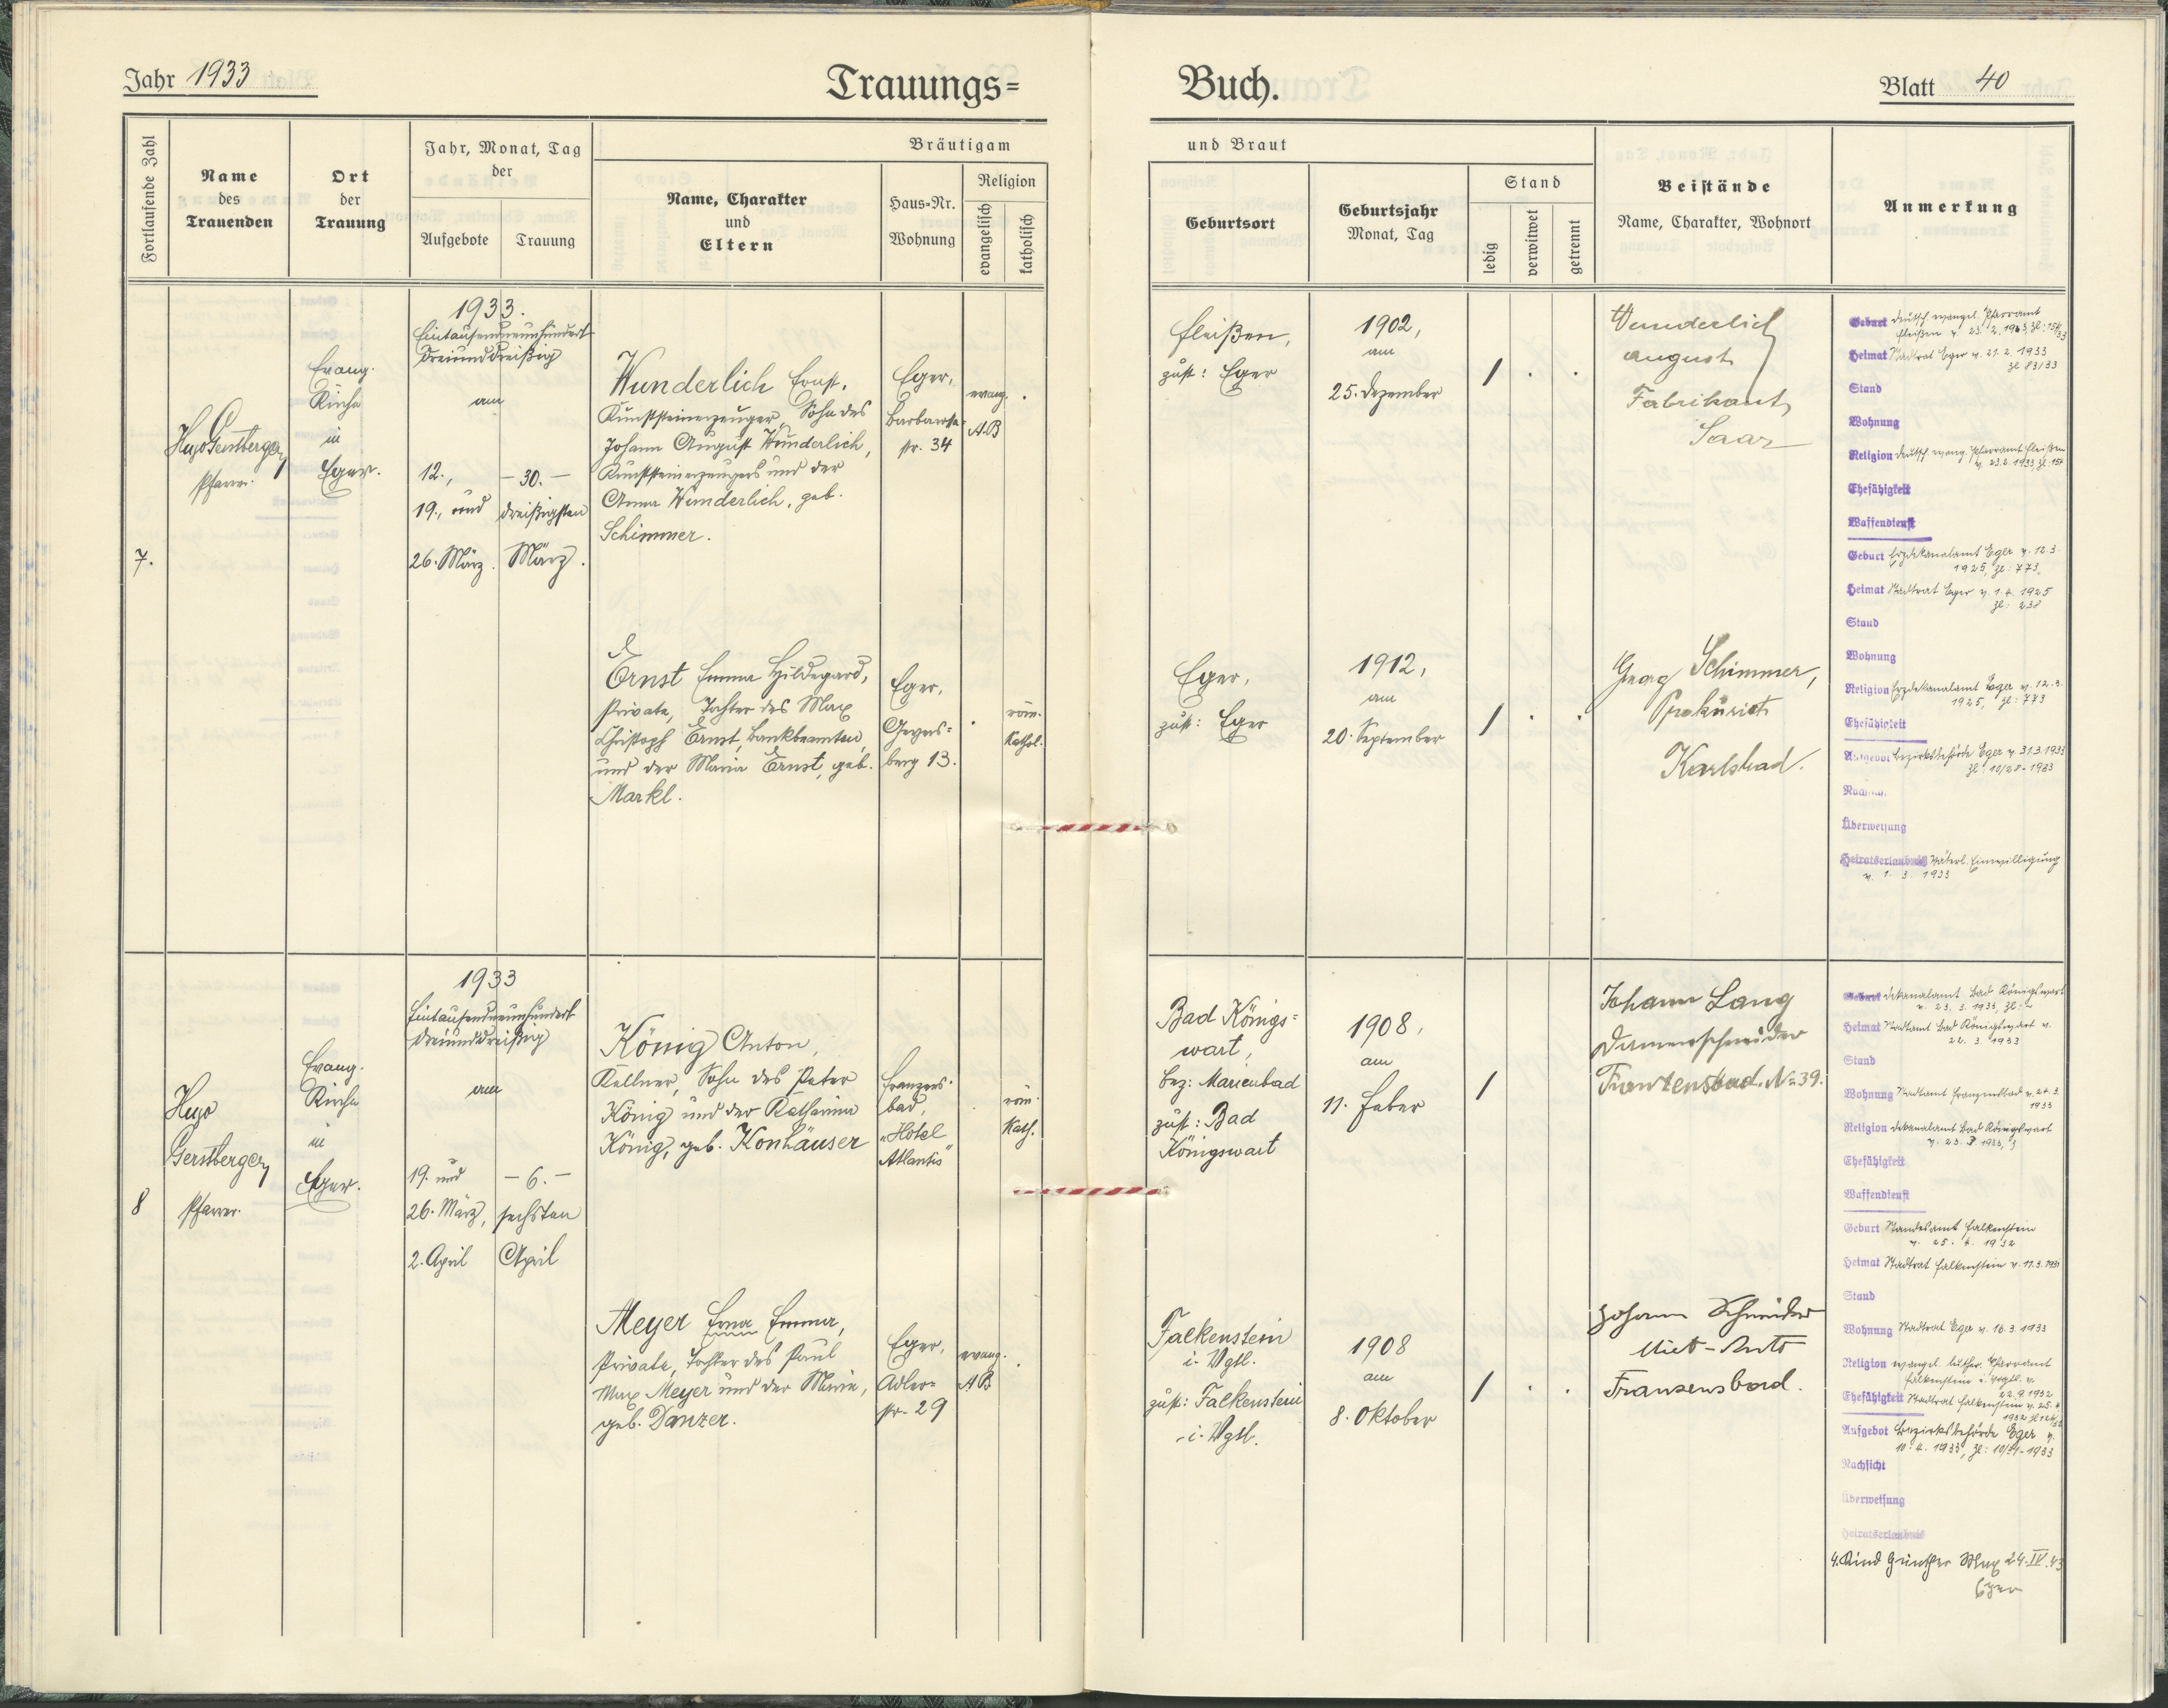 Jahr 1933
Trauungs=
Buch.
Blatt 40
Fortlaufende Zahl
Name
des
Trauenden
Ort
der
Trauung
Jahr, Monat, Tag
der
Aufgebote
Trauung
Bräutigam
Name, Charakter
und
Eltern
Haus=Nr.
Wohnung
Religion
evangelisch
katholisch
und Braut
Geburtsort
Geburtsjahr
Monat, Tag
Stand
ledig
verwitwet
getrennt
Beistände
Name, Charakter, Wohnort
Anmerkung
7.
Hugo Gerstberger
Pfarrer.
Evang.
Kirche
in
Eger.
1933.
Eintausendneunhundert
dreiunddreißig
am
12.,
19., und
26. März.
- 30. -
dreißigsten
März.
Wunderlich Ernst,
Kunststeinerzeuger, Sohn des
Johann August Wunderlich,
Kunststeinerzeugers und der
Anna Wunderlich, geb.
Schimmer.
Eger,
Barbarossa-
str. 34
evang.
A.B
Fleißen,
zust: Eger
1902,
am
25. Dezember
Wunderlich
August
Fabrikant
Saar
Geburt Deutsch. evangel. Pfarramt
Fleißen v. 23. 2. 1933, Zl: 154/33
Heimat Stadtrat Eger v. 21. 2. 1933
Zl 83/33
Stand
Wohnung
Religion Deutsch. evang. Pfarramt Fleißen
v. 23. 2. 1933, Zl: 154
Ehefähigkeit
Waffendienst
Ernst Emma Hildegard,
Private, Tochter des Max
Christoph Ernst, Bankbeamten,
und der Maria Ernst, geb.
Markl.
Eger,
Geyers=
berg 13.
röm.
kathol.
Eger,
zust: Eger
1912,
am
20. September
Georg Schimmer,
Prokurist
Karlsbad.
Geburt Erzdekanalamt Eger v. 12. 3.
1925, Zl: 773.
Heimat Stadtrat Eger v. 1. 4. 1925
Zl: 238
Stand
Wohnung
Religion Erzdekanalamt Eger v. 12. 3.
1925, Zl: 773
Ehefähigkeit
Aufgebot Bezirksbehörde Eger v. 31.3.1933
Zl: 10/28-1933
Überweisung
Heiratserlaubnis Väterl. Einwilligung
v. 1. 3. 1933
8
Hugo
Gerstberger
Pfarrer.
Evang.
Kirche
in
Eger.
1933
Eintausendneunhundert
dreiunddreißig
am
19. und
26. März,
2. April
- 6. -
sechsten
April
König Anton,
Kellner, Sohn des Peter
König und der Katharina
König, geb. Konhäuser
Franzens-
bad,
"Hotel
Atlantis"
röm.
kath.
Bad Königs=
wart,
bez: Marienbad
zust: Bad
Königswart
1908,
am
11. Feber
Johann Lang
Damenschneider
Franzensbad. No 39.
Geburt Dekanalamt Bad Königswart
v. 23. 3. 1933, Zl: -
Heimat Stadtamt Bad Königswart v.
22. 3. 1933
Stand
Wohnung Stadtamt Franzensbad v. 24. 3.
1933
Religion Dekanalamt Bad Königswart
v. 23. 3. 1933,
Ehefähigkeit
Waffendienst
Meyer Erna Emma,
Private, Tochter des Paul
Max Meyer und der Maria,
geb. Danzer.
Eger,
Adler=
str. 29
evang.
A B
Falkenstein
i. Vgtl.
zust: Falkenstein
i. Vgtl.
1908
am
8. Oktober
Johann Schneider
Miet-Auto
Franzensbad.
Geburt Standesamt Falkenstein
v. 25. 4. 1932
Heimat Stadtrat Falkenstein v. 11. 3. 1931
Stand
Wohnung Stadtrat Eger v. 16. 3. 1933
Religion evangel. luther. Pfarramt
Falkenstein i. Vogtl. v.
22. 9. 1932
Ehefähigkeit Stadtrat Falkenstein v. 25. 4.
1932
Aufgebot Bezirksbehörde Eger v.
10. 4. 1933, Zl: 10/31-1933
Nachsicht
Überweisung
Heiratserlaubnis
4. Kind Günther Max 24. IV. 43
Eger